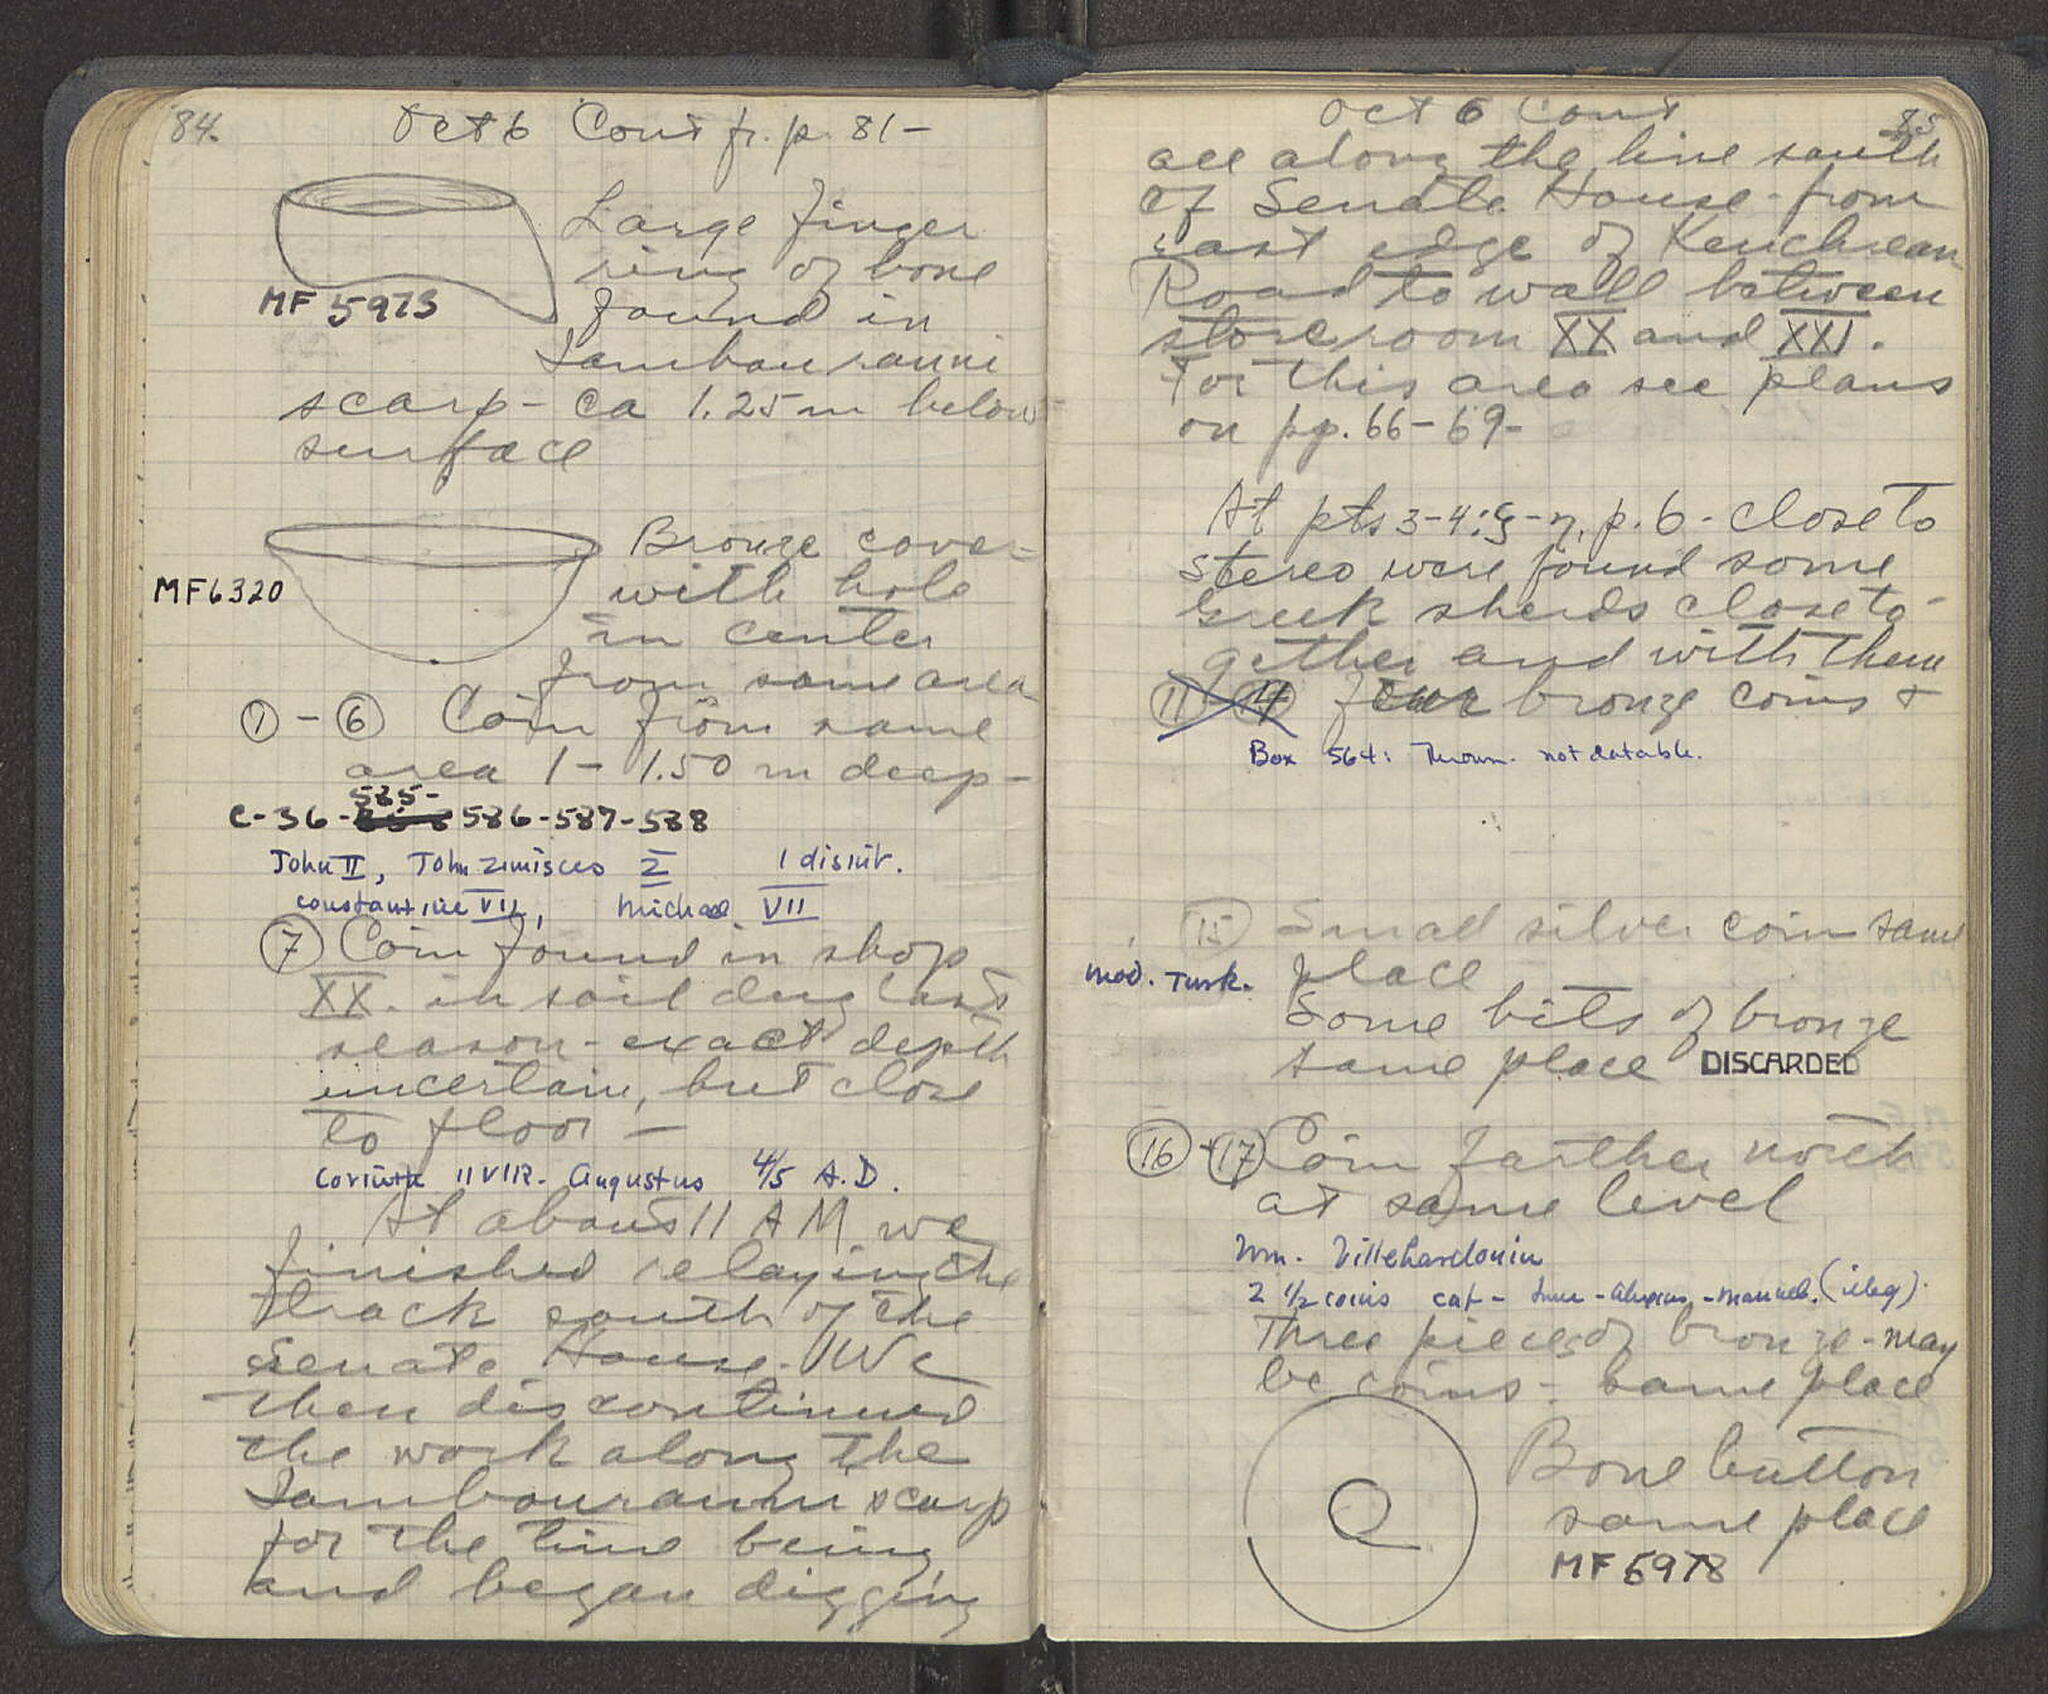 84.
Oct 6 Cont fr. p. 81-
Large finger
ring of bone
found in
MF 5975
Tambouranni
scarp - ca 1.25 m below
surface
Bronze cover
with hole
MF6320
in center
from same area
① - ⑥ Coin from same
area 1 - 1.50 m deep -
585-
C-36- 586-587-588
John II, John Zimisces I 1 disint.
Constantine VII, Michael VII
⑦ Coin found in shop
XX. in soil dug last
season - exact depth
uncertain, but close
to floor -
Corinth IIVIR. Augustus 4/5 A.D.
At about 11 AM we
finished relaying the
track south of the
Senate House. We
then discontinued
the work along the
Tambouranni scarp
for the time being
and began digging
85
Oct 6 Cont
all along the line south
of Senate House - from
east edge of Kenchrean
Road to wall between
storeroom XX and XXI.
For this area see plans
on pp. 66-69-
At pts 3-4:ξ-η, p. 6 - close to
stereo were found some
Greek sherds close to-
gether and with them
11 - 14 four bronze coins +
Box 564: Thrown. not datable.
15 Small silver coin same
Mod. Turk. place
Some bits of bronze
same place DISCARDED
⑯ + ⑰ Coin farther north
at same level
Wm. Villehardouin
2 1/2 coins cat - - Manuel. (illeg).
Three pieces of bronze - may
be coins - same place
Bone button
same place
MF 5978